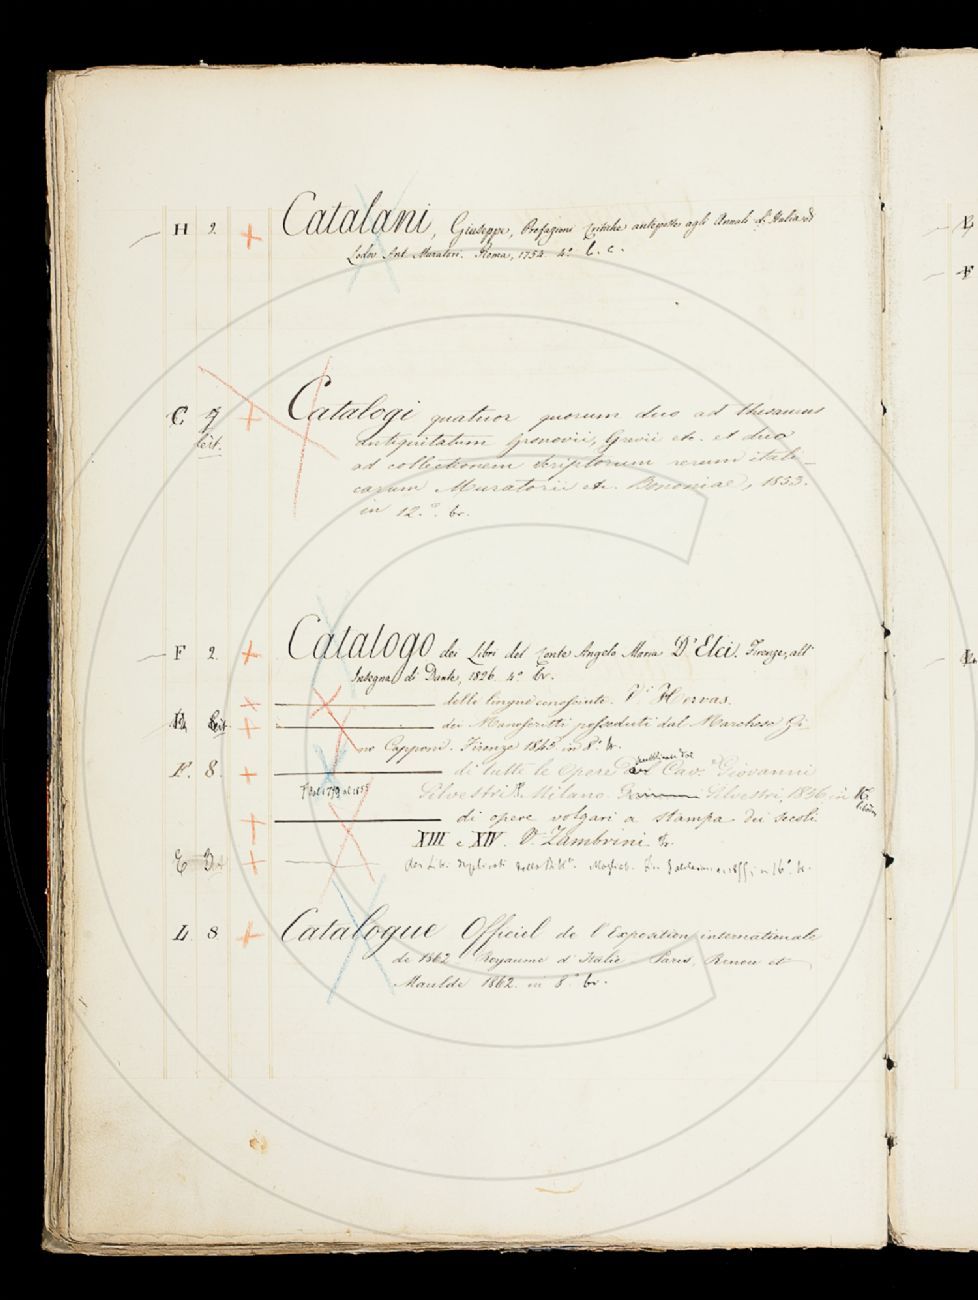 H 2 + Catalani, Giuseppe, Prefazioni Critiche anteposte agli Annali d'Italia di
Lodov. Ant. Muratori. Roma, 1754 4.º l. c.
C 7 + Catalogi quatuor quorum duo ad thesaurus
antiquitatum Gronovii, Grevii etc. et duo
ad collectionem scriptorum rerum itali-
carum Muratorii etc. Bononiae, 1853.
in 12.º br.
F 2 + Catalogo dei Libri del Conte Angelo Maria D'Elci. Firenze, all'
Insegna di Dante, 1826. 4.º br.
+ delle lingue conosciute. V. Hervas.
+ dei Manoscritti posseduti dal Marchese Gi
no Capponi. Firenze 1845 in 8.º br.
F. 8. + di tutte le Opere Cav.re Giovanni
Silvestri Milano Silvestri, 1856 in 16.
+ di opere volgari a stampa dei secoli
XIII e XIV. V. Zambrini.
E + dei Lib. duplicati della Magliab.
L 8 + Catalogue Officiel de l'Exposition internationale
de 1862 Royaume d'Italie - Paris, Renou et
Maulde 1862. in 8.º br.